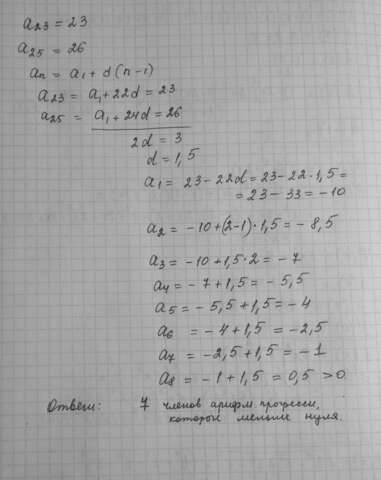 a₂₃ = 23
a₂₅ = 26
aₙ = a₁ + d (n-1)
a₂₃ = a₁ + 22d = 23
a₂₅ = a₁ + 24d = 26
2d = 3
d = 1,5
a₁ = 23 - 22d = 23 - 22 · 1,5 =
= 23 - 33 = -10
a₂ = -10 + (2-1) · 1,5 = - 8,5
a₃ = -10 + 1,5 · 2 = -7
a₄ = -7 + 1,5 = - 5,5
a₅ = - 5,5 + 1,5 = -4
a₆ = -4 + 1,5 = -2,5
a₇ = -2,5 + 1,5 = -1
a₈ = -1 + 1,5 = 0,5 > 0
Ответ: 7 членов арифм. прогрессии,
которые меньше нуля.